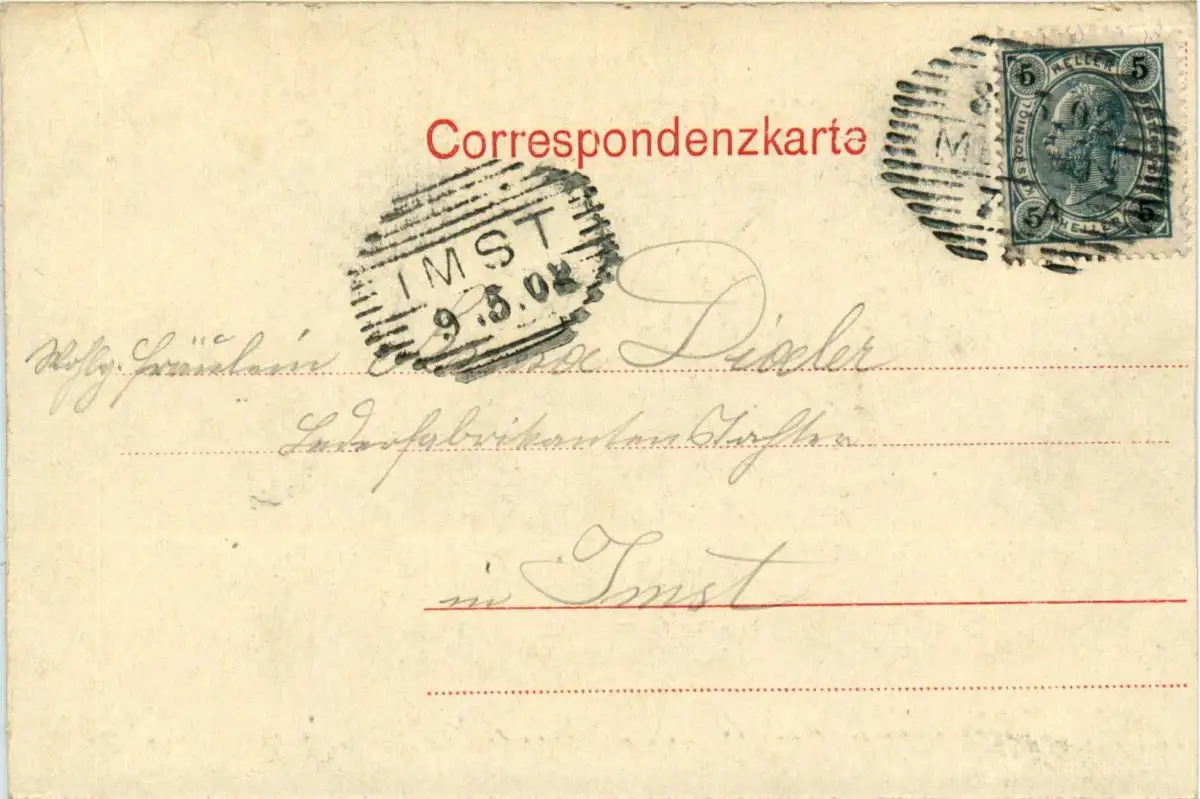 Correspondenzkarte
5 HELLER 5
5 HELLER 5
IMST
9.5.02
Wohlg. Fräulein Dialer
Lederfabrikanten Tochter
in Imst